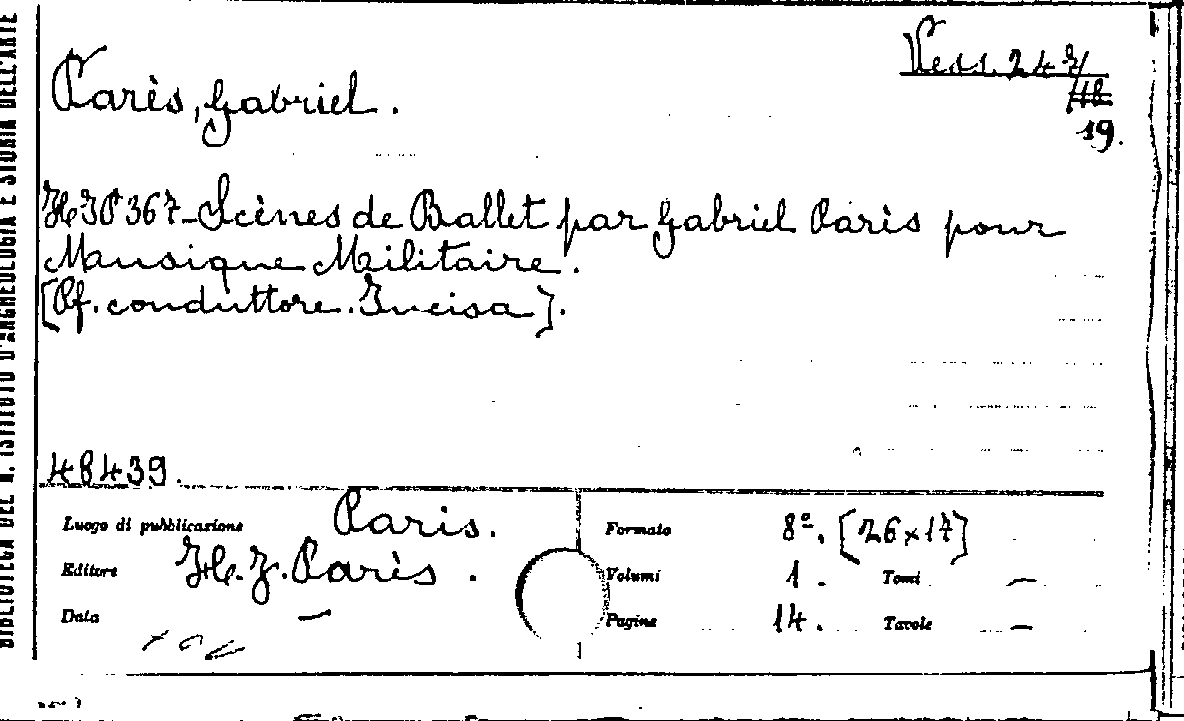 BIBLIOTECA DEL R. ISTITUTO D'ARCHEOLOGIA E STORIA DELL'ARTE
Vess. 247/
19.
Parès, Gabriel.
HJP 367-Scènes de Ballet par Gabriel Parès pour
Mausique Militaire.
[Pf. conduttore. Incisa].
48439.
Luogo di pubblicazione Paris.
Editore H. J. Parès.
Data —
Formato 8º. [26×17]
Volumi 1. Tomi —
Pagine 14. Tavole —